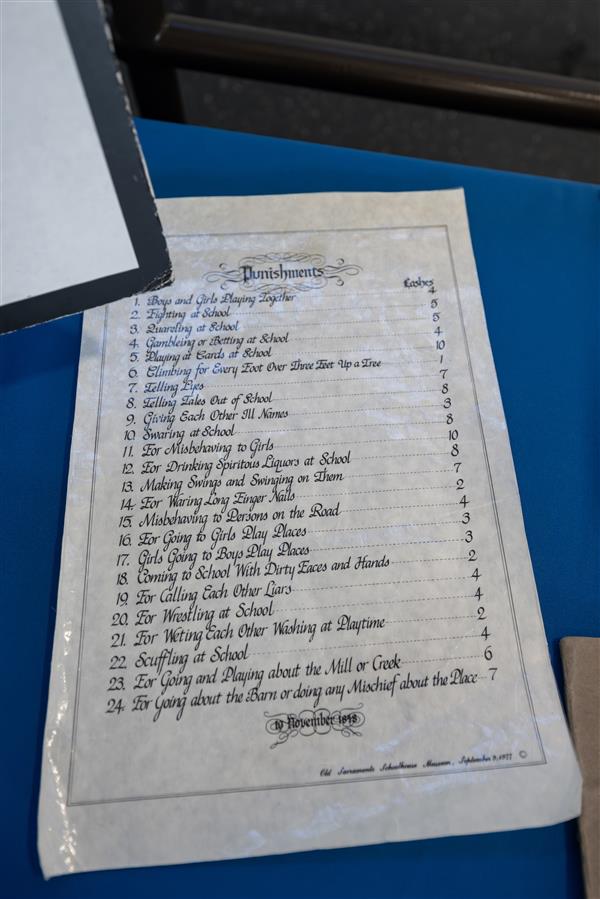 Punishments
Lashes
1. Boys and Girls Playing Together 4
2. Fighting at School 5
3. Quareling at School 5
4. Gambleing or Betting at School 4
5. Playing at Cards at School 10
6. Climbing for Every Foot Over Three Feet Up a Tree 1
7. Telling Lyes 7
8. Telling Tales Out of School 8
9. Giving Each Other Ill Names 3
10. Swaring at School 8
11. For Misbehaving to Girls 10
12. For Drinking Spiritous Liquors at School 8
13. Making Swings and Swinging on Them 7
14. For Waring Long Finger Nails 2
15. Misbehaving to Persons on the Road 4
16. For Going to Girls Play Places 3
17. Girls Going to Boys Play Places 3
18. Coming to School With Dirty Faces and Hands 2
19. For Calling Each Other Liars 4
20. For Wrestling at School 4
21. For Weting Each Other Washing at Playtime 2
22. Scuffling at School 4
23. For Going and Playing about the Mill or Creek 6
24. For Going about the Barn or doing any Mischief about the Place 7
10 November 1848
Old Sacramento Schoolhouse Museum, September 9, 1977 ©